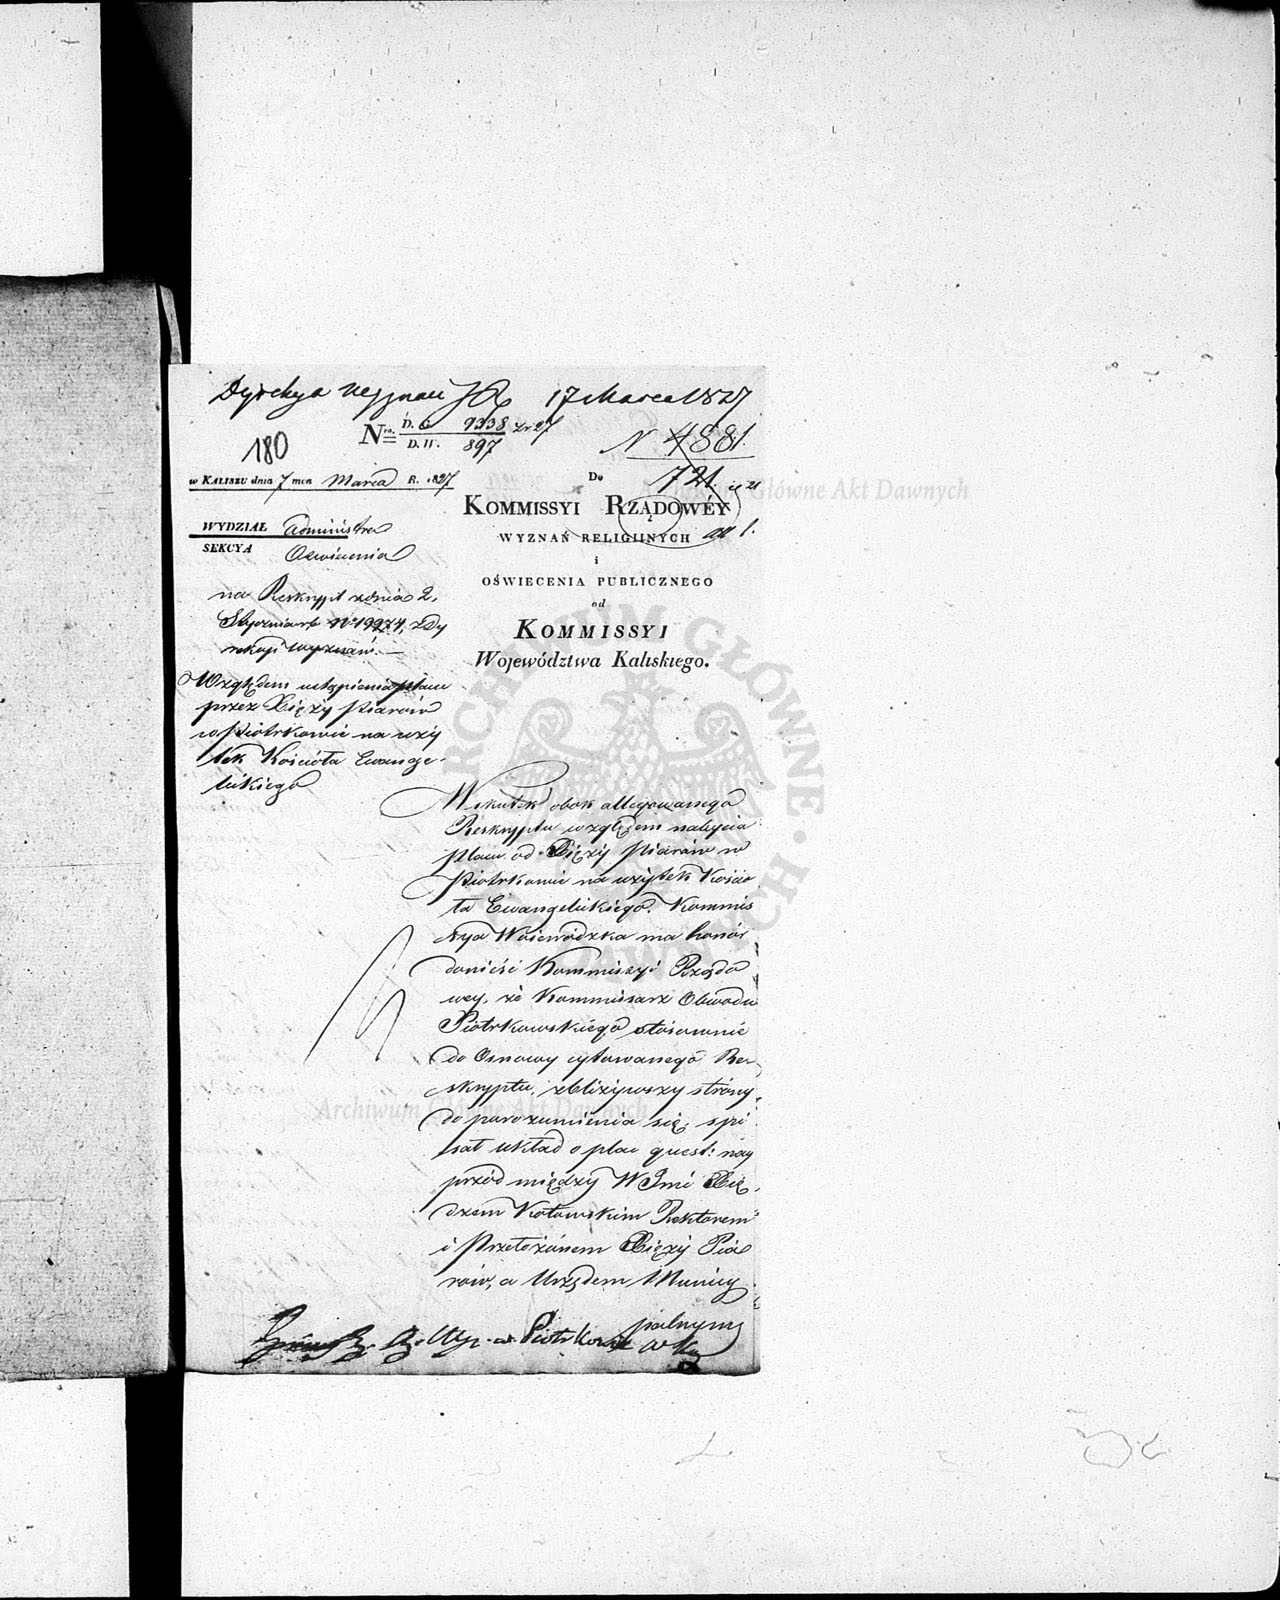 Dyrekcya wyznań 17 Marca 1827
180
Nro. D. G. 9338 Zr. 27
D. W. 897
N 4881.
721.
w KALISZU dnia 7 mca Marca R. 1827
Do
KOMMISSYI RZĄDOWÉY
WYZNAŃ RELIGIINYCH
i
OŚWIECENIA PUBLICZNEGO
od
KOMMISSYI
Województwa Kaliskiego.
WYDZIAŁ Administra
SEKCYA Oświecenia
na Reskrypt z dnia 2.
Stycznia rb N 19974, z Dy
rekcyi Wyznań. —
Względem ustąpienia placu
przez Xięży Piarów
w Piotrkowie na uży
tek Kościoła Ewange-
lickiego
W skutek obok allegowanego
Reskryptu względem nabycia
placu od Xięży Piarów w
Piotrkowie na użytek Kościo
ła Ewangelickiego. Kommis
sya Woiewódzka ma honór
donieść Kommissyi Rządo
wey, że Kommissarz Obwodu
Piotrkowskiego stosownie
do Osnowy cytowanego Re-
skryptu, zbliżywszy strony
do porozumienia się, spi
sał układ o plac quest: nay
przód między WJmć Xię
dzem Kotowskim Rektorem
i Przełożonem Xięży Pia
rów, a Urzędem Municy
palnym
w Piotrkowie
Archiwum Główne Akt Dawnych
Archiwum Główne Akt Dawnych
ARCHIWUM GŁÓWNE AKT DAWNYCH